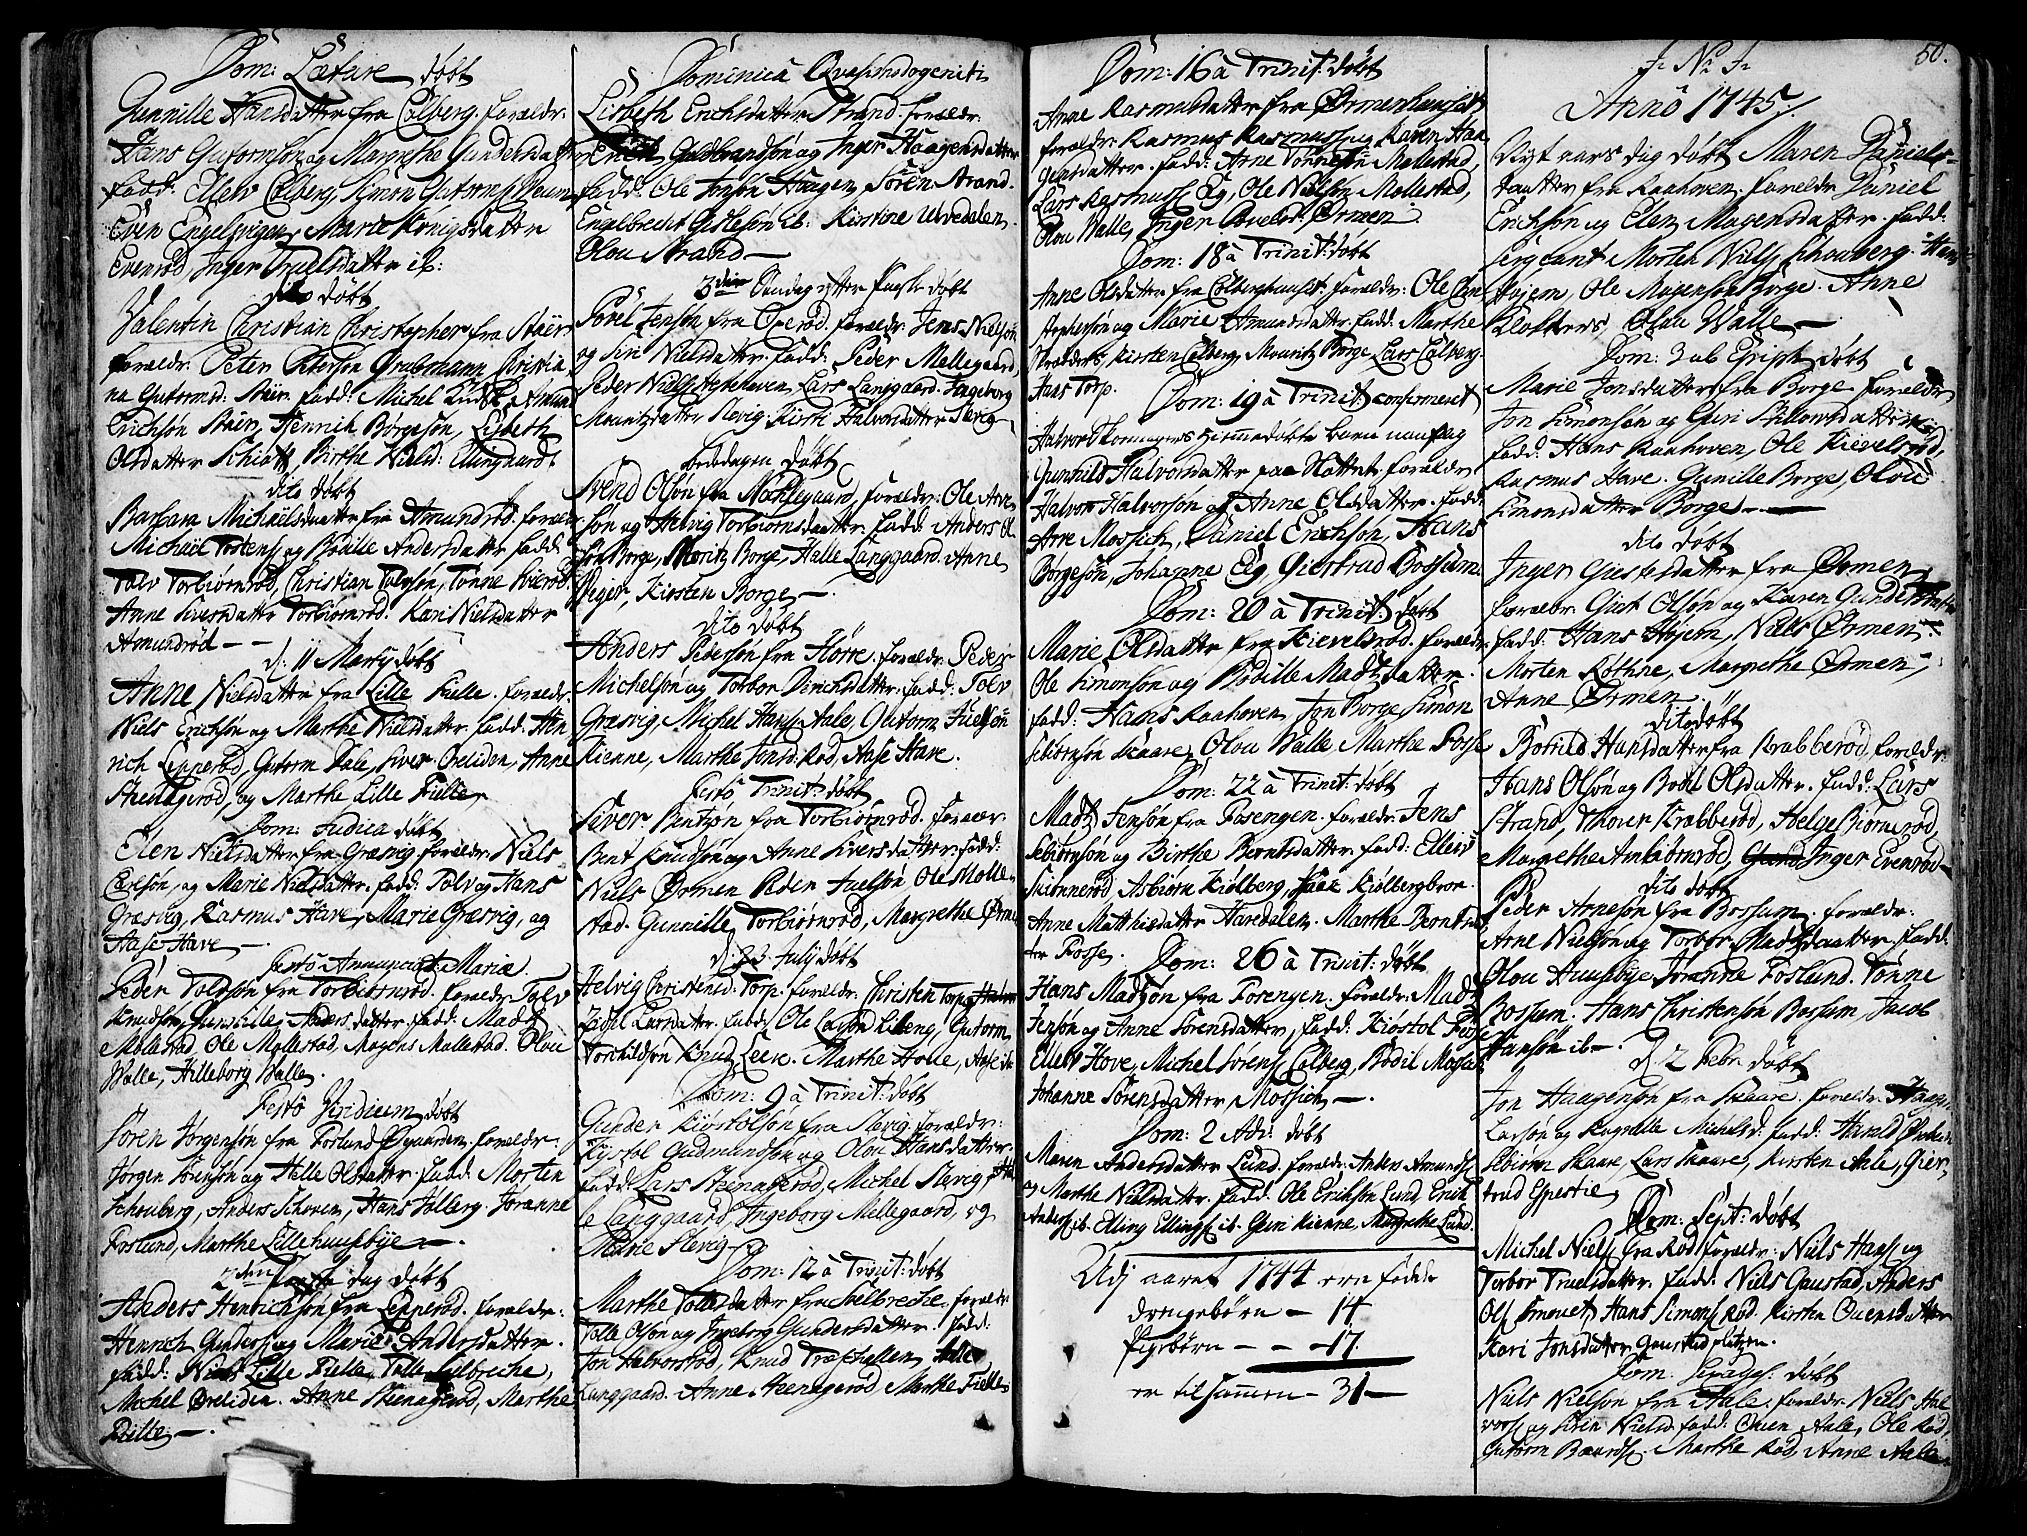 Dom: Lætare døbt
Gunnille Hansdatter fra Colberg. forældr:
Hans Gutormsøn og Margrethe Gundersdatter
fadd: Ellev Colberg, Simon Gutorms
Even Engelsvigen, Marie Königsdatter
Evenrød, Inger Truelsdatter ib:
dito døbt
Valentin Christian Christopher fra Støer
forældr: Peter Peterson Grabmann, Christia
na Gutormsd: Støer. fadd: Michel Amund
Erichsøn Støer, Henrich Börgesøn, Lisbeth
Olsdatter Schiøtt, Birthe Nielsd: Ellinggaard
dito døbt
Barbara Michaelsdatter fra Amundrød. forældr
Michael Tostens og Bodille Andersdatter fadd:
Tolv Torbiørnrød, Christian Tolvsøn, Tønne
Anne Siversdatter Torbiørnrød. Kari Nielsdatter
Amundrød —
d: 11 Martij døbt
Anne Nielsdatter fra Lille Fielle. forældr:
Niels Erichsøn og Marthe Nielsdatter fadd: Hen
rich Lepperød, Gutorm Dale, Siver Ørebiden, Anne
Steenagerød, og Marthe Lille Fielle
Dom: Judica døbt
Elen Nielsdatter fra Græsvig. forældr: Niels
og Marie Nielsdatter. fadd: Tolv og Hans
Græsvig, Rasmus Have, Marie Græsvig, og
Aase Have —
Festo Annunciat: Mariæ.
Peder Tolvsøn fra Torbiørnrød. forældr: Tolv
Knudsøn, Gunnille Andersdatter. fadd: Madtz
Mollestad, Ole Mollestad, Mogens Mollestad. Olou
Walle, Hilleborg Walle.
Festo Viridium døbt
Søren Jørgensøn fra Foslund Øgaarden. forældr:
Jørgen og Helle Olsdatter. fadd: Morten
Schouberg, Anders Schoven, Hans Solberg. Joranne
Foslund, Marthe Lille huusbÿe —
2den Paaske dag døbt
Anders Henrichsøn fra Lepperød. forældr:
Henrich Gunders og Marie Andersdatter.
fadd: Niels Lille Fielle, Tolle Sælbreche,
Michel Ørebiden. Anne Steenagerød, Marthe
Fielle —.
Dominica Qvasimodogeniti
Lisbeth Erichsdatter Strand. forældr:
Erich Gulbrandsøn og Inger Haagensdatter
fadd: Ole Haagen, Søren Strand.
Engelbrecht Gislesøn ib: Kirstine Ulvedalen
Olou Strand —
3die Søndag efter Paaske døbt
Povel Jensøn fra Operød. forældr: Jens Nielsøn
og Siri Nielsdatter. fadd: Peder Mellegaard,
Peder Niels Langgaard. Ingeborg
Mouritzdatter Slevig. Kirsti Halvorsdatter Slevig
bededagen døbt
Svend Olsøn fra Nählegaard, forældr: Ole Arve
søn og Helvig Torbiørnsdatter. fadd: Anders Ol
søn Borge, Moritz Borge, Halle Langgaard. Anne
Kirsten Borge —
dito døbt
Anders Pedersøn fra Hørre. forældr: Peder
Michelsøn og Torbor Derichsdatter. fadd: Tolv
Græsvig, Michel Hanss Aale, Gutorm Juelsøn
Kienne, Marthe Jonsd: Rød, Aase Have.
Festo Trinit: døbt
Siver Bentsøn fra Torbiørnrød. forær:
Bent Knudsøn og Anne Siversdatter. fadd:
Niels Ørmen Peder Juelsøn Ole Molle
stad. Gunnille Torbiørnrød, Margrethe Ørmen
d: 23 Julij døbt
Helvig Christensd: Torp. forældr: Christen Torp
Larsdatter. fadd: Ole Gutorm
Torchildsøn Knud Leek. Marthe Aase ib
Dom: 9 a Trinit: døbt
Gunder Kiøstolsøn fra Slevig forældr:
Kystol Gudmundsøn og Olou Hansdatter
fadd: Lars Steenagerød, Michel Slevig
Langgaard, Ingeborg Millegaard, og
Marie Slevig
Dom: 12 a Trinit: døbt
Marthe Tollesdatter fra Sælbreche. forældr
Tolle Olsøn og Ingeborg Gundersdatter. fadd:
Jon Halvorsrød, Knud Træschallen, Halle
Langgaard. Anne Steenagerød, Marthe Fielle
Dom: 16 a Trinit: døbt
Anne Rasmusdatter fra Ørmenhaugen
forældr: Rasmus Rasmuss og Karen Haa
gensdatter. fadd: Arne Tønnesøn Mollestad,
Lars Rasmuss Elg, Ole Nielsøn Mollestad,
Olou Walle, Inger Ørmen.
Dom: 18 a Trinit: døbt
Anne Olsdatter fra Colberghauset. forældr: Ole Chri
stophersøn og Marie Amundsdatter. fadd: Marthe
Kirsten Colberg Mouritz Borge Lars Colberg
Hans Torp.
Dom: 19 a Trinit confirmeret
Halvord hiemmedøbte barn naufnlig
Gunnild Halvorsdatter forældr
Halvor Halvorsøn og Anne Olsdatter. fadd:
Arve Mossich, Daniel Erichsøn, Hans
Borgesøn, Johanne Elg, Giertrud Bossum.
Dom: 20 a Trinit: døbt
Marie Olsdatter fra Kievelsrød. forældr
Ole Simonsøn og Bodille Madtzdatter.
fadd: Hans Raahoven Jon Borge Simon
Sebiørnsøn Skaare, Olou Walle Marthe Fosse
Dom: 22 a Trinit: døbt
Madtz Jensøn fra Fosengen. forældr: Jens
Sebiørnsøn og Birthe Berntsdatter. fadd: Ellev
Skiønnerød Asbiørn Kiølberg, Kiølbergbroe.
Anne Matthisdatter Haredalen. Marthe Berntsdat
ter Fosse.
Dom: 26 a Trinit: døbt
Hans Madsøn fra Fosengen. forældr: Madtz
Jensøn og Anne Sørensdatter, fadd: Kiøstol Fosse
Ellev Hove, Michel Sørens Colberg, Bodil
Johanne Sørensdatter Mossich —.
Dom: 2 Adv: døbt
Maren Andersdatter Lund. forældr: Anders Amunds
og Marthe Nielsdatter. fadd: Ole Eriksøn Lund, Erick
Anderss ib. Elling Ellings ib. Guri Kienne, Margrethe Lund.
Udj aaret 1744 ere fødde
drengebørn — 14
Pigebørn — — 17
er tilsammen — 31 —
50.
J: N: J:
Anno 1745
Nyt aars dag døbt Maren Daniels-
daatter fra Raahoven. forældr: Daniel
Erichsøn og Elen Mogensdatter. fadd:
Sergeant Morten Niels Schouberg. Hans
Hyem, Ole Mogensøn Borge. Anne
Klokkers, Olou Walle —
Dom: 3 ab Epiph døbt
Marie Jonsdatter fra Borge forældr
Jon Simonsøn og Guri
fadd: Hans Raahoven, Ole Kievelsrød,
Rasmus Have. Gunille Borge, Olou
Simonsdatter Borge —
dito døbt
Inger Giestesdatter fra Ørmen
forældr: Olsøn og Karen Gundersdatter
fadd: Hans Hyem, Niels Ørmen
Morten Køthne, Margrethe Ørmen,
Anne Ørmen.
dito døbt
Hansdatter fra Krabberød, forældr:
Hans Olsøn og Bodil Olsdatter. fadd: Lars
Strand, Krabberød, Helge Biørnerød,
Margrethe Ambiørnrød, Inger Evenrød
dito døbt
Peder Arnesøn fra Bossum. forældr:
Arne Nielsøn og Torbor Madtzdaatter. fadd:
Olou Huusbÿe Joranne Foslund. Tønne
Bossum. Hans Christensøn Bossum, Jacob
Hansøn ib —.
d. 2 Febr. døbt
Jon Haagensøn fra Skaare. forældr: Haagen
Larsøn og Ragnille Michelsd: fadd: Harald
Sebiørn Skaare, Lars Skaare, Kirsten Aale, Gier,
trud
Dom: Sept: døbt
Michel Niels fra Rød forældr: Niels Hanss og
Torbor Truelsdatter. fadd: Niels Gaustad, Anders
Ols Hans Simonss Rød. Kirsten Ouensdatter
Kari Jonsdatter Gaustadpladsen.
Dom: Sexages: døbt
Niels Nielsøn fra Aale. forældr: Niels Hal
vorss og Siren Nielsd: fadd: Ouen Aale, Ole Rød,
Gutorm Baardss. Marthe Rød, Anne Aale